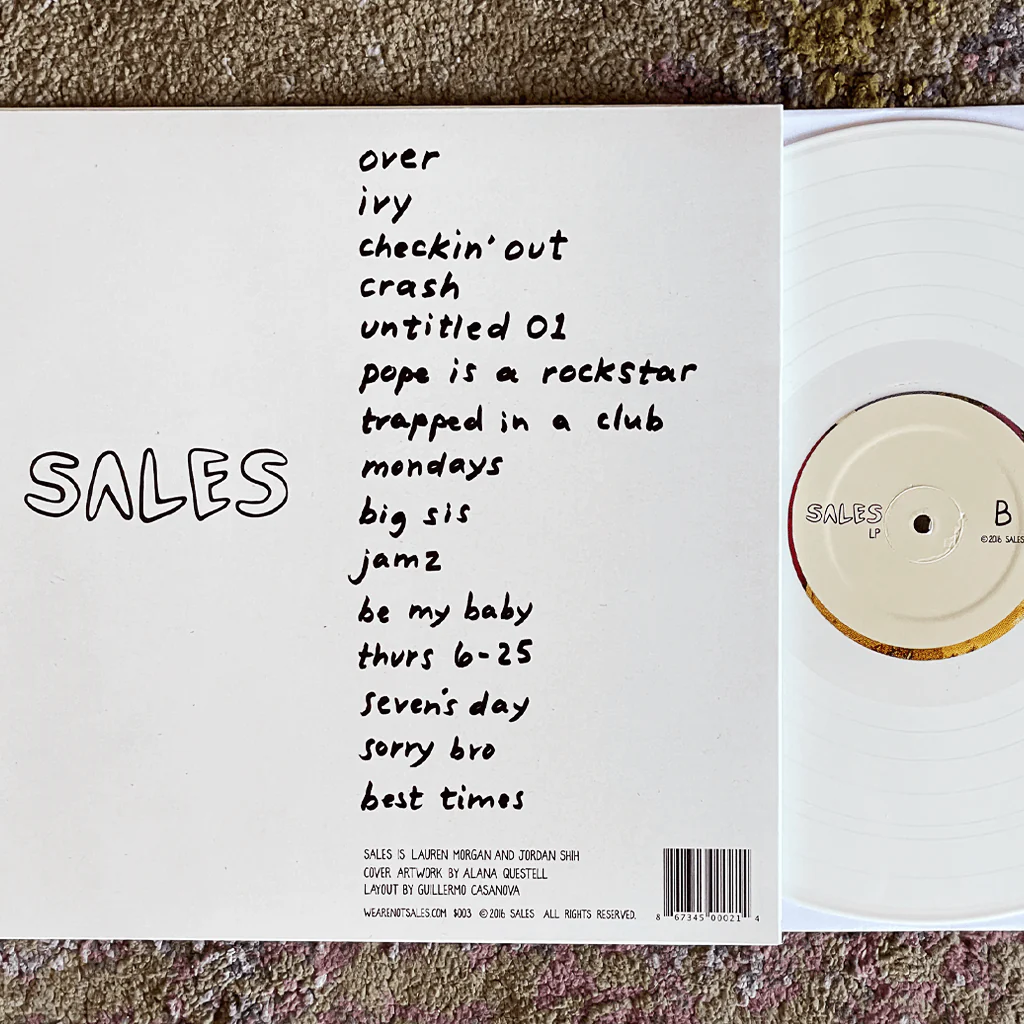 over
ivy
checkin' out
crash
untitled 01
pope is a rockstar
trapped in a club
mondays
big sis
jamz
be my baby
thurs 6-25
seven's day
sorry bro
best times
SALES
SALES IS LAUREN MORGAN AND JORDAN SHIH
COVER ARTWORK BY ALANA QUESTELL
LAYOUT BY GUILLERMO CASANOVA
WEARENOTSALES.COM $003 ©2016 SALES ALL RIGHTS RESERVED.
8 67345 00021 4
SALES
LP
B
©2016 SALES